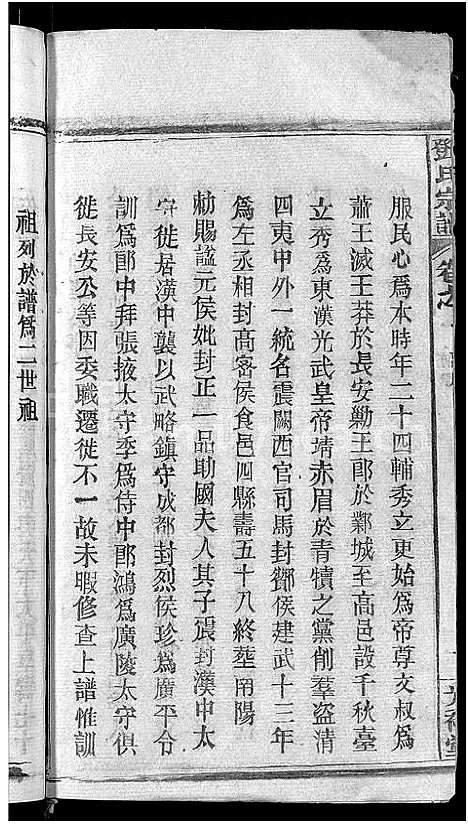 鄧氏宗譜
卷之
服民心爲本時年二十四輔秀立更始爲帝尊文叔爲
蕭王滅王莽於長安勦王郎於鄴城至高邑設千秋臺
立秀爲東漢光武皇帝靖赤眉於青犢之黨削羣盜清
四夷中外一統名震關西官司馬封酇侯建武十三年
爲左丞相封高密侯食邑四縣壽五十八終塟南陽
勅賜謚元侯妣封正一品助國夫人其子震封漢中太
守徙居漢中襲以武略鎮守成都封烈侯珍爲廣平令
訓爲郎中拜張掖太守季爲侍中郎鴻爲廣陵太守俱
徙長安公等因委職遷徙不一故未暇修查上譜惟訓
祖列於譜爲二世祖